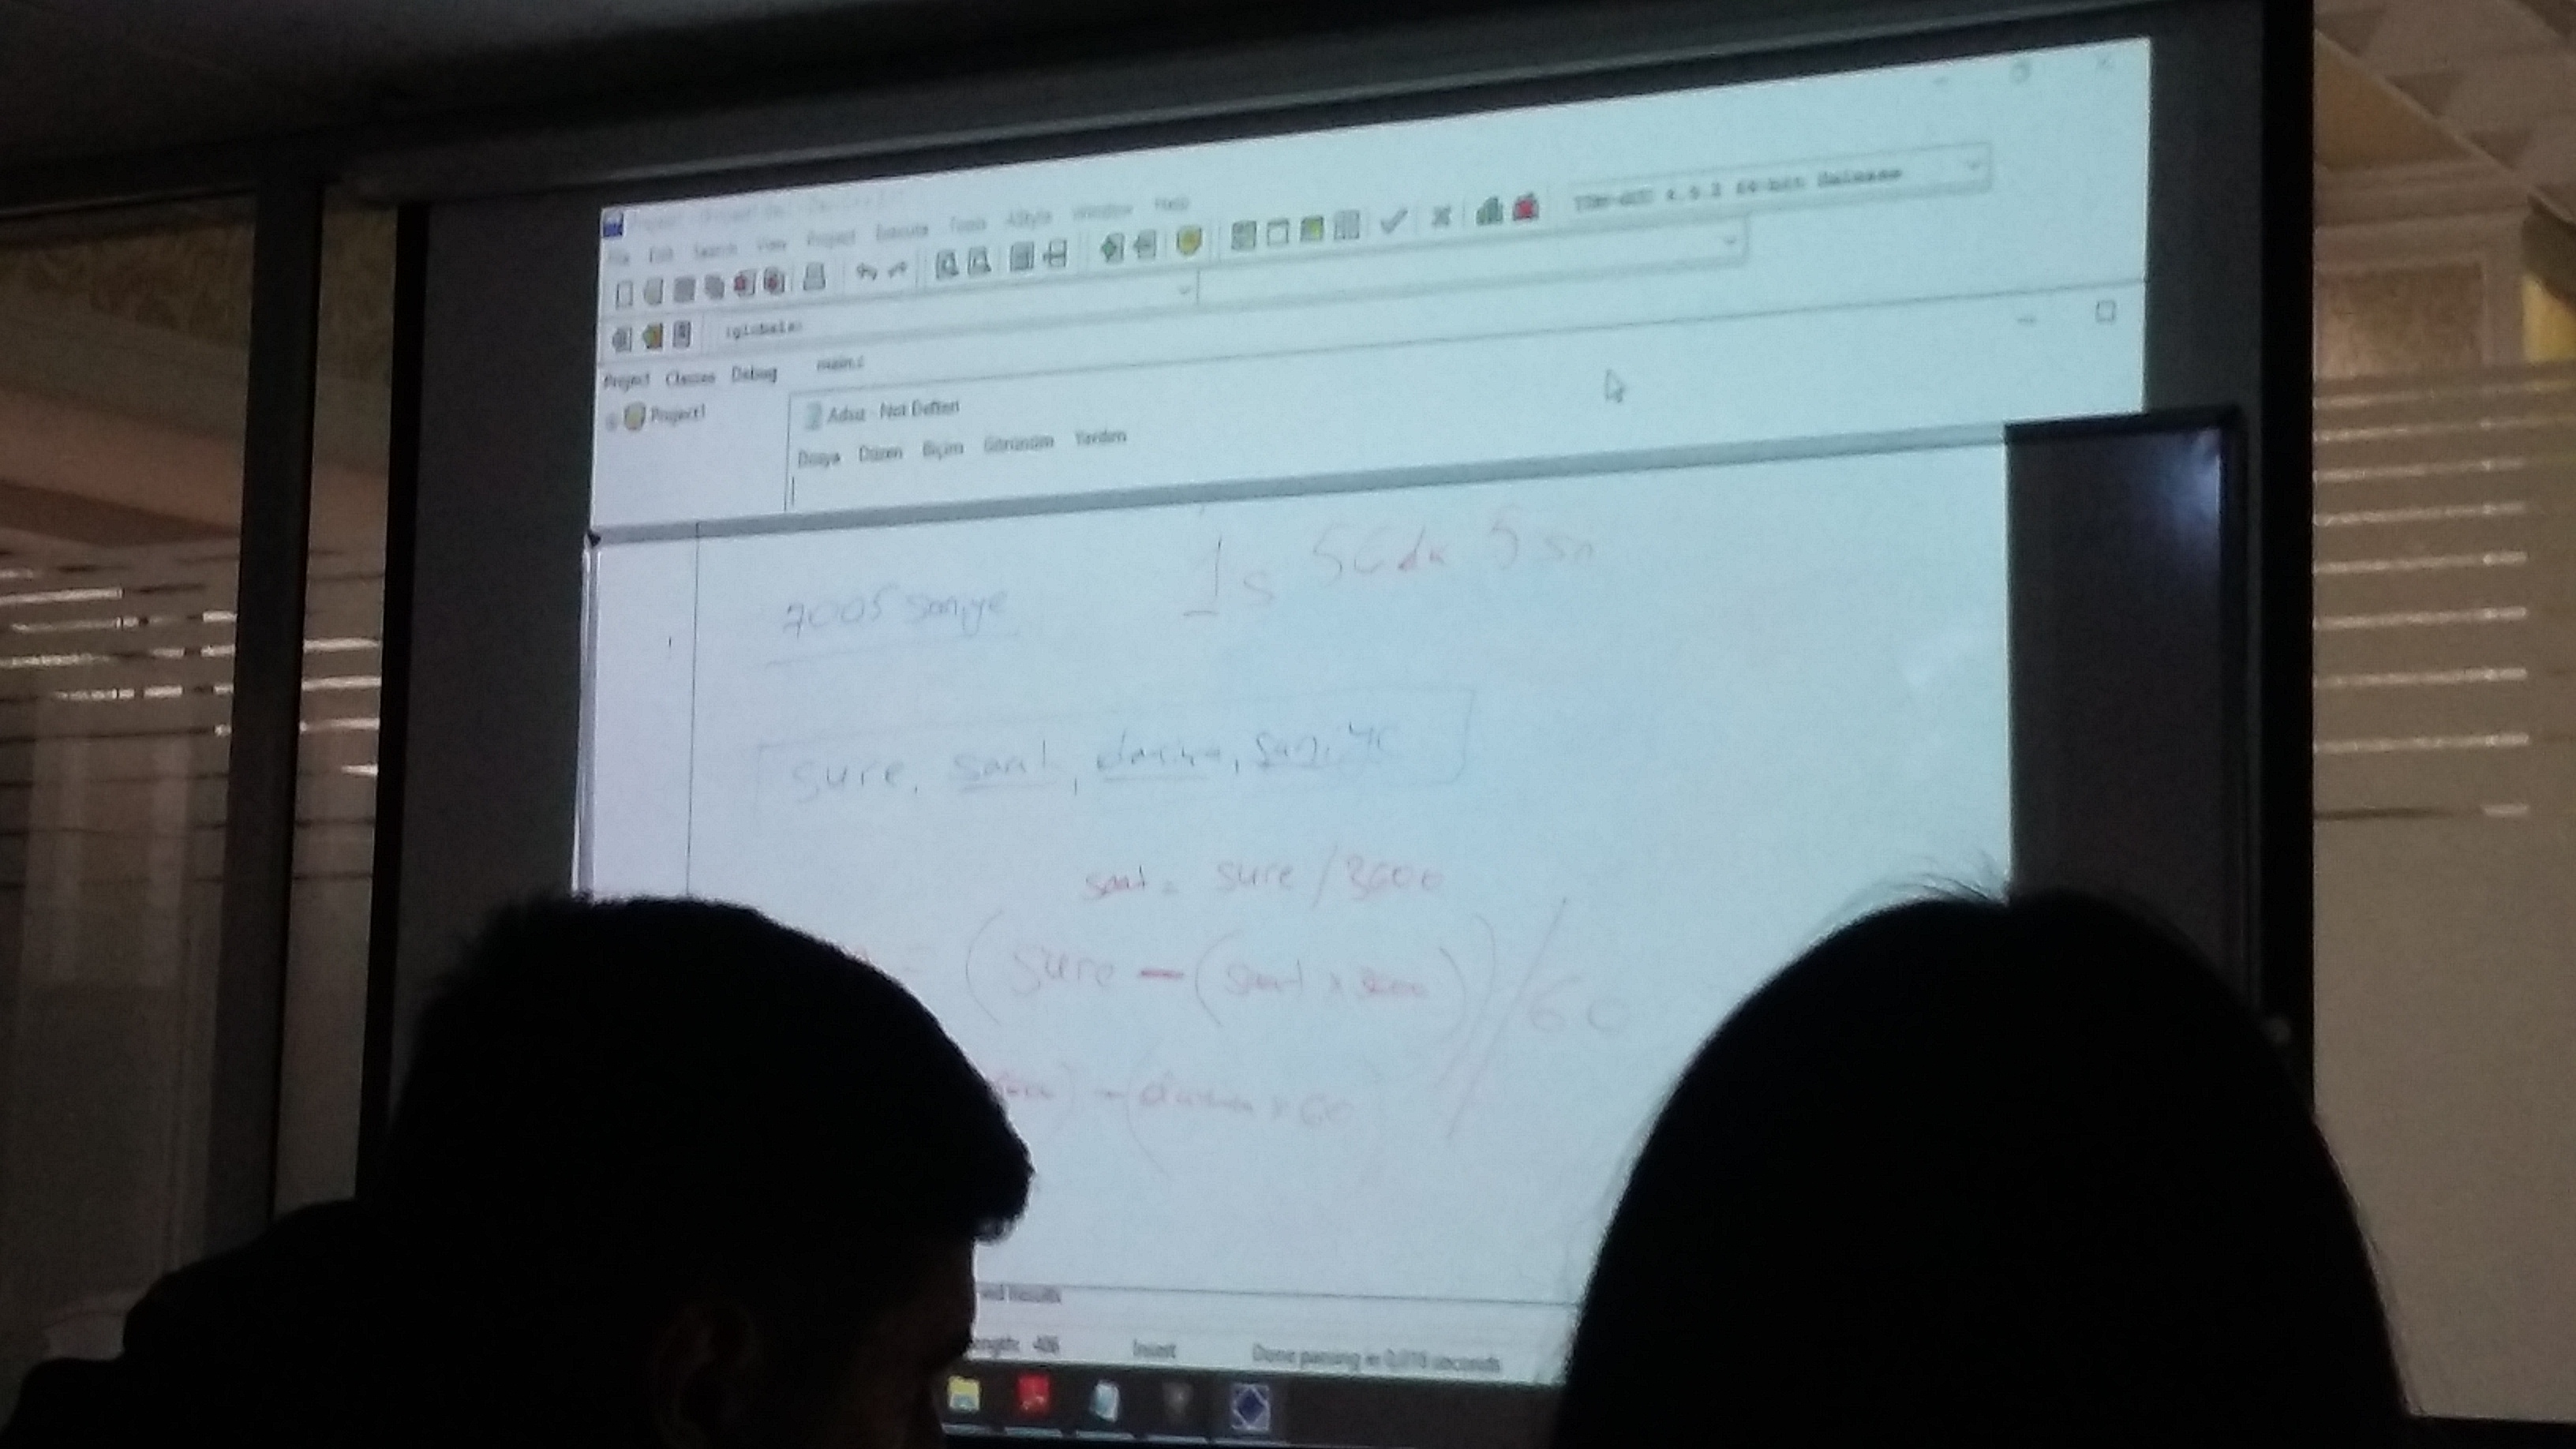 File Edit Search View Project Execute Tools AStyle Window Help
TDM-GCC 4.9.2 64-bit Release
(globals)
Project Classes Debug
main.c
Project1
Adsız - Not Defteri
Dosya Düzen Biçim Görünüm Yardım
7005 saniye
1 s 56 dk 5 sn
sure, saat, dakika, saniye
saat = sure / 3600
= (sure - (saat x 3600)) / 60
- (dakika x 60
Results
Insert
Done parsing in seconds